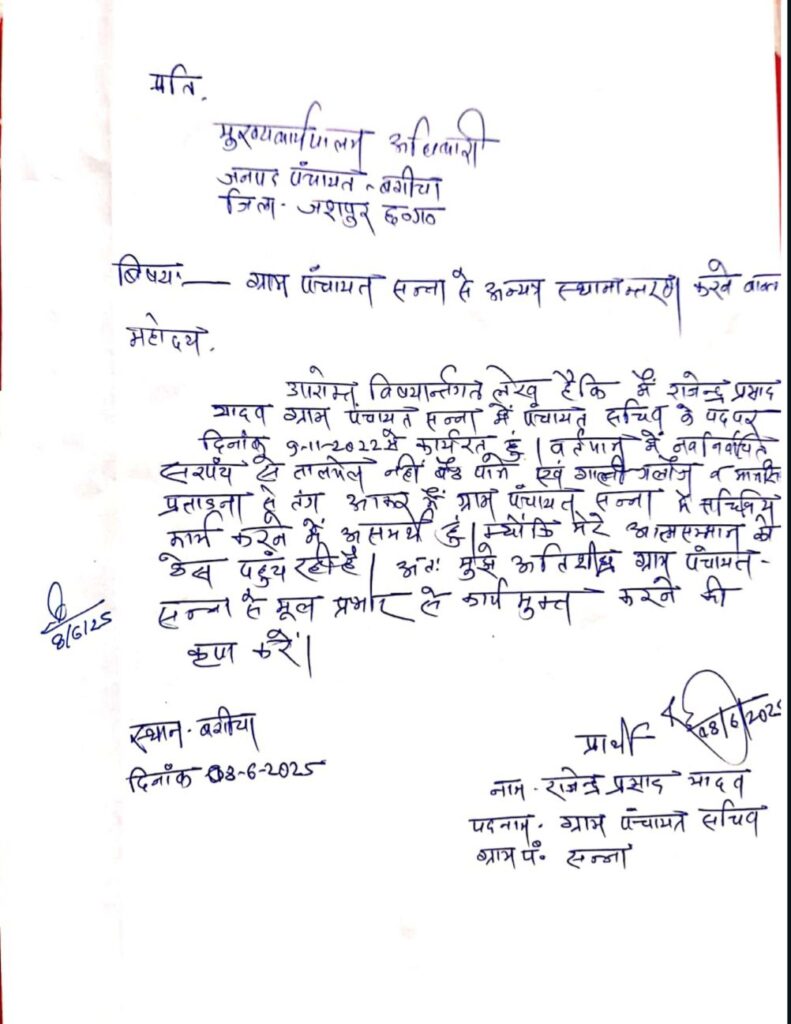 प्रति,
मुख्यकार्यपालन अधिकारी
जनपद पंचायत - बगीचा
जिला - जशपुर छ०ग०
बिषय:— ग्राम पंचायत सन्ना से अन्यत्र स्थानान्तरण करने बाबत
महोदय,
उपरोक्त विषयान्तर्गत लेख है कि मैं राजेन्द्र प्रसाद
यादव ग्राम पंचायत सन्ना में पंचायत सचिव के पद पर
दिनांक 9-11-2022 से कार्यरत हूं। वर्तमान में नवनिर्वाचित
सरपंच से तालमेल नहीं बैठ पाने एवं गाली गलौज व मानसिक
प्रताड़ना से तंग आकर मैं ग्राम पंचायत सन्ना में सचिवीय
कार्य करने में असमर्थ हूं। क्योंकि मेरे आत्मसम्मान को
ठेस पहुंच रही है। अंतः मुझे अतिशीघ्र ग्राम पंचायत -
सन्ना से मूल प्रभार से कार्य मुक्त करने की
कृपा करें।
8/6/25
स्थान - बगीचा
दिनांक 08-6-2025
08/6/2025
प्रार्थी
नाम - राजेन्द्र प्रसाद यादव
पदनाम - ग्राम पंचायत सचिव
ग्राम पं. सन्ना